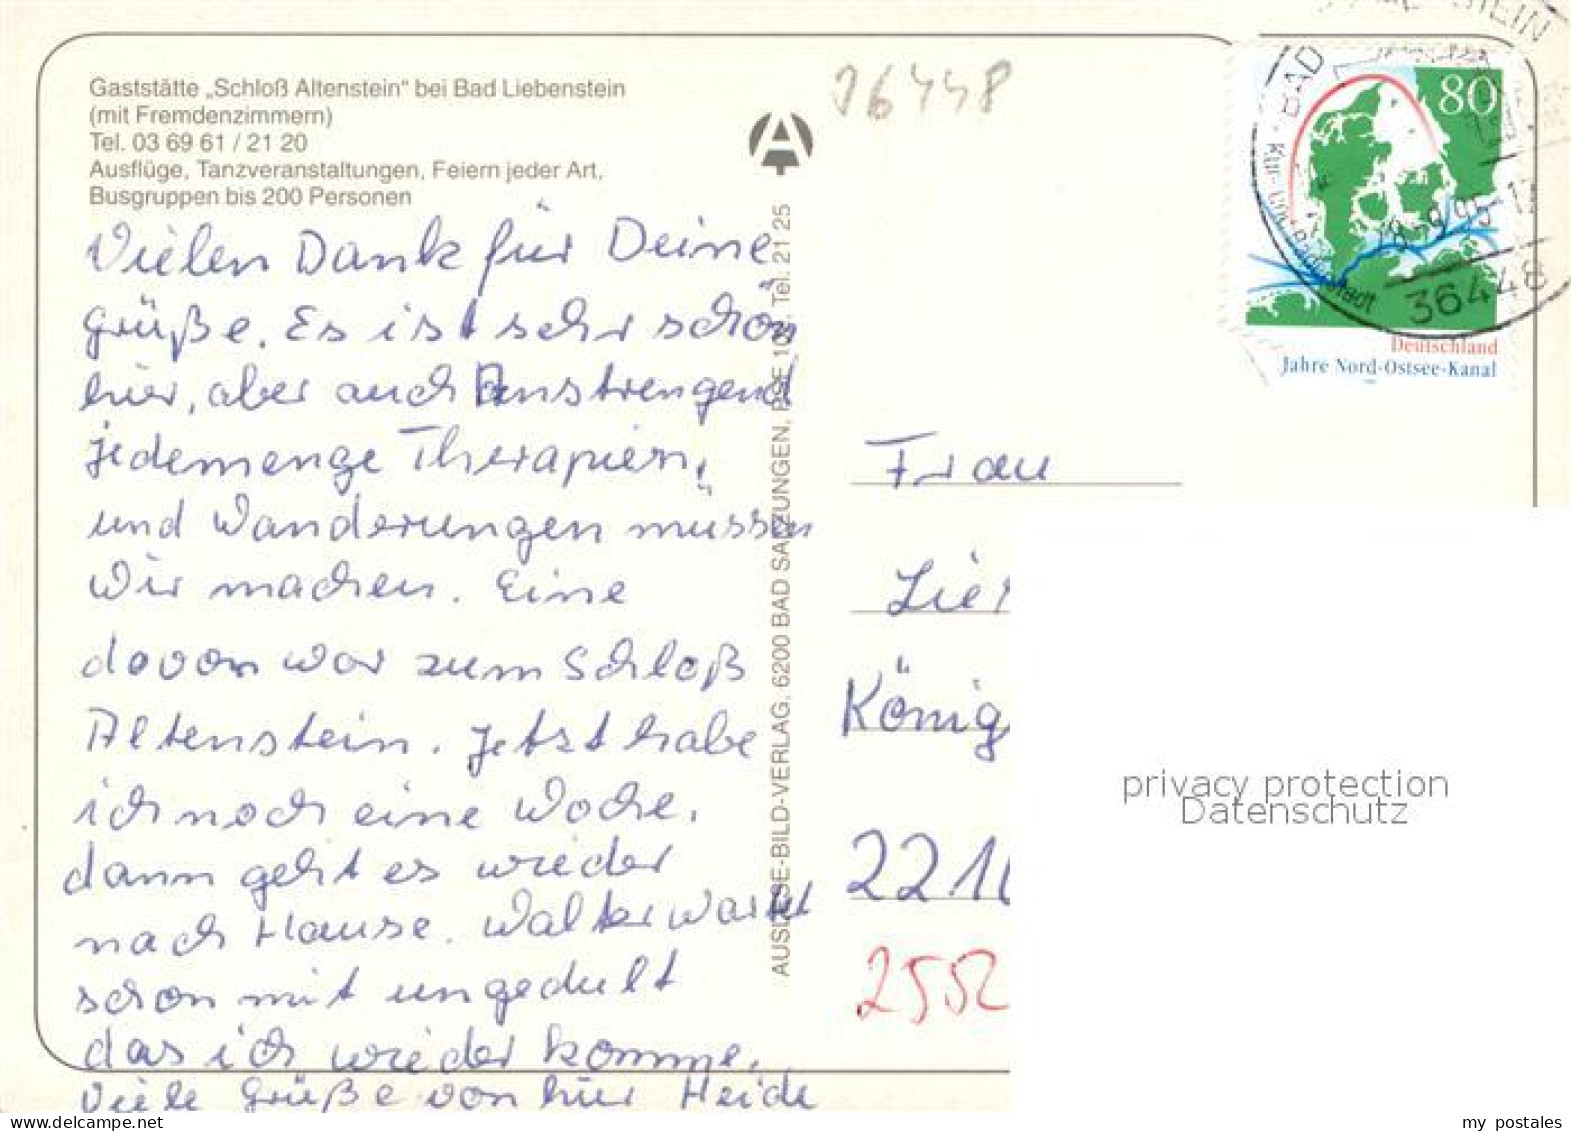 Gaststätte „Schloß Altenstein" bei Bad Liebenstein
(mit Fremdenzimmern)
Tel. 03 69 61 / 21 20
Ausflüge, Tanzveranstaltungen, Feiern jeder Art,
Busgruppen bis 200 Personen
Vielen Dank für Deine
Grüße. Es ist sehr schön
hier, aber auch Anstrengend
jedemenge Therapien,
und Wanderungen müssen
wir machen. Eine
davon war zum Schloß
Altenstein. Jetzt habe
ich noch eine Woche,
dann geht es wieder
nach Hause. Walter wartet
schon mit ungedult
das ich wieder komme.
Viele Grüße von hier Heide
AUSLESE-BILD-VERLAG, 6200 BAD SALZUNGEN, Tel. 21 25
36448
80
Deutschland
Jahre Nord-Ostsee-Kanal
BAD
36448
Frau
König
221
2552
privacy protection
Datenschutz
my postales